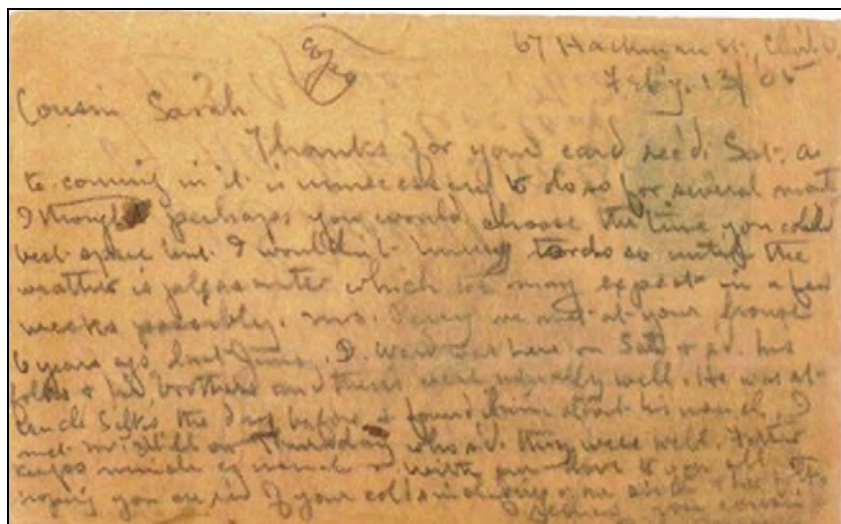 67 Hackman St.,
Feby. 13/05
Cousin Sarah
Thanks for your card rec'd. Sat. as
to coming in it is unnecessary to do so for several
I thought perhaps you would choose the time you could
best spare but I wouldn't hurry to do so until the
weather is pleasanter which we may expect in a few
weeks possibly. Mrs. we met at your house
6 years ago last June. D. was here on Sat. &
folks & his brothers and theirs were usually well. He was at
Uncle the day before & found him about his usual. I
met Mr. on Thursday who sd. they were well. Father
keeps much as usual & with love to you all
hoping you are rid of your colds
your cousin